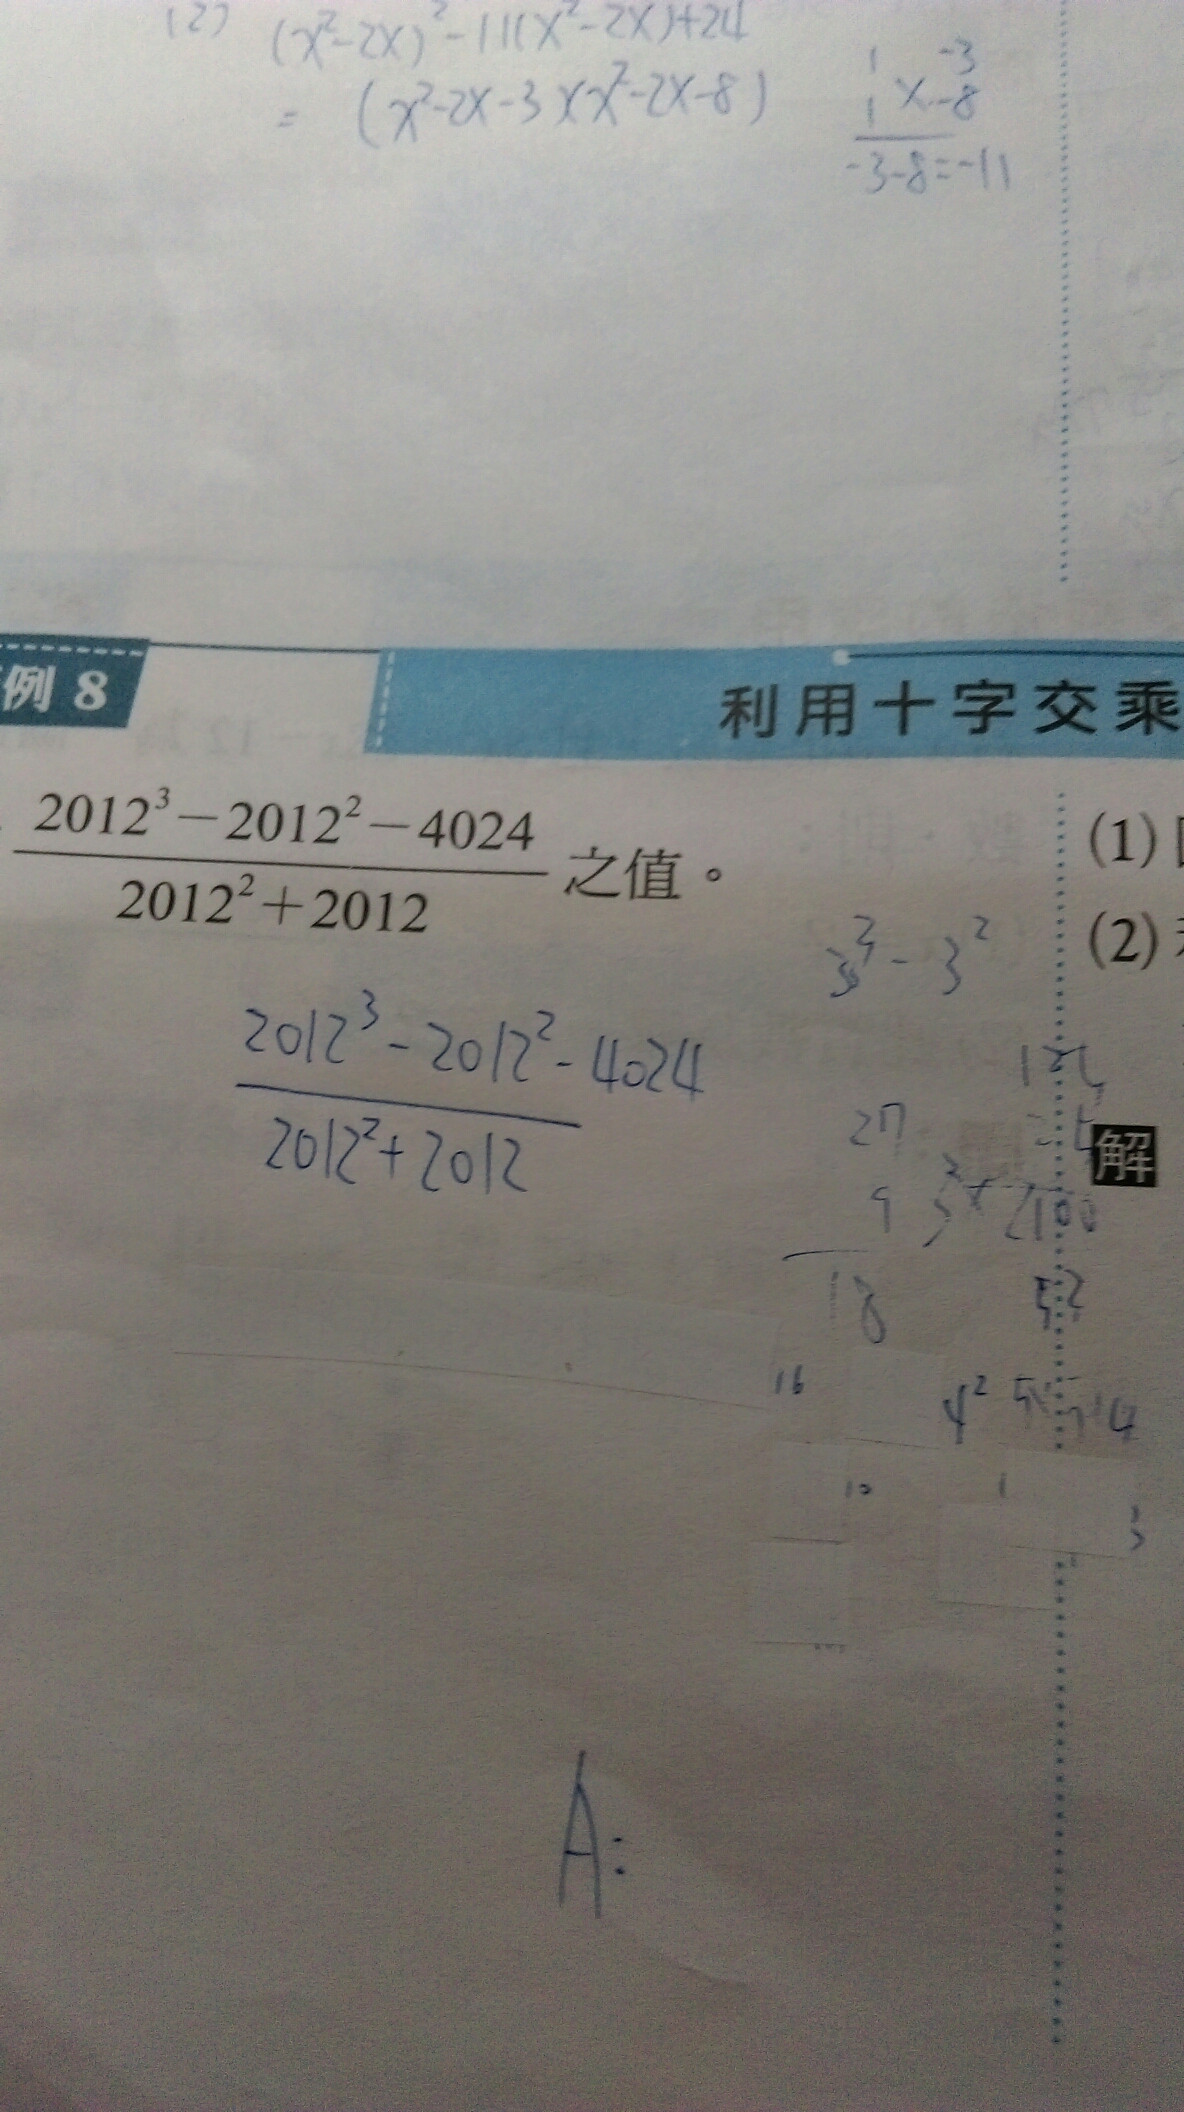 (2) (x²-2x)²-11(x²-2x)+24
= (x²-2x-3)(x²-2x-8)
1 -3
1 × -8
-3-8=-11
例 8
利用十字交乘
2012³-2012²-4024
2012²+2012
之值。
(1)
(2)
3³-3²
2012³-2012²-4024
2012²+2012
27
9
18
解
16
4²
10
1
3
A: